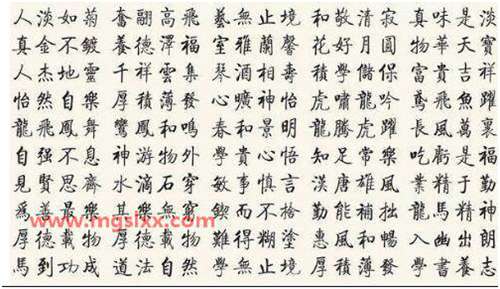 人淡如菊 奮翮高飛 藝無止境 和敬清寂 真味是淡
真金不鍍 養德澤福 室雅蘭馨 花好月圓 物華天寶
人杰地靈 千祥雲集 琴酒相壽 學儲 富貴吉祥
怡然自樂 厚積薄發 心曠神怡 虎嘯龍吟 鳶飛魚躍
龍飛鳳舞 鸞鳳和鳴 春和景明 龍騰虎躍 長風萬裏
自强不息 神游物外 學貴心悟 知足常樂 吃虧是福
見賢思齊 水滴石穿 敏事慎言 漢唐雄風 業精於勤
爲善最樂 其樂無窮 鍥而不捨 勤能補拙 龍馬精神
www.mgslxx.com
厚德載物 厚德載物 難得糊塗 惠風和暢 入幽出朗
馬到功成 道法自然 學無止境 厚積薄發 學書養志